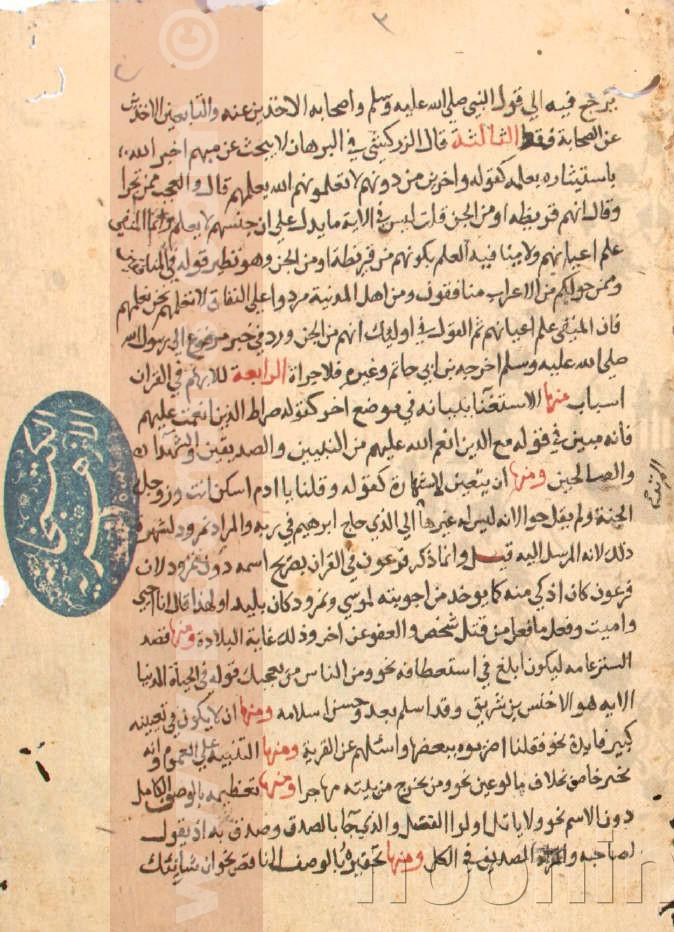 ٢
يرجع فيه الى قول النبي صلى الله عليه وسلم واصحابه الاخذين عنه والتابعين الاخذين
عن الصحابة فقط الثالثة قال الزركشي في البرهان لا يبحث عن مبهم اخبر الله
باستيثاره بعلمه كقوله واخرين من دونهم لا تعلمونهم الله يعلمهم قال والعجب ممن تجرا
وقال انهم قريظه او من الجن قلت ليس في الاية ما يدل على ان جنسهم لا يعلم وانما المنفي
علم اعيانهم ولا ينافيه العلم بكونهم من قريظة او من الجن وهو نظير قوله في المنافقين
وممن حولكم من الاعراب منافقون ومن اهل المدينة مردوا على النفاق لا تعلمهم نحن نعلمهم
فان المنفى علم اعيانهم ثم القول في اوليك انهم من الجن ورد في خبر مرفوع الى رسول الله
صلى الله عليه وسلم اخرجه بن ابي حاتم وغيره فلا جراة الرابعة للابهام في القران
اسباب منها الاستغنا ببيانه في موضع اخر كقوله صراط الذين انعمت عليهم
فانه مبين في قوله مع الذين انعم الله عليهم من النبيين والصديقين والشهدا
والصالحين ومنها ان يتعين لاشتهاره كقوله وقلنا يا ادم اسكن انت وزوجك
الجنة ولم يقل حوا لانه ليس له غيرها الى الذي حاج ابرهيم في ربه والمراد نمرود لشهرة
ذلك لانه المرسل اليه قيل وانما ذكر فرعون في القران بصريح اسمه دون نمرود لان
فرعون كان اذكى منه كما يوخذ من اجوبته لموسي ونمرود كان بليدا ولهذا قال انا احيي
واميت وفعل ما فعل من قتل شخص والعفو عن اخر وذلك غاية البلادة ومنها قصد
الستر عامه ليكون ابلغ في استعطافه نحو ومن الناس من يعجبك قوله في الحياة الدنيا
الايه هو الاخنس بن شريق وقد اسلم بعد وحسن اسلامه ومنها ان لا يكون في تعيينه
كبير فايدة نحو فقلنا اضربوه ببعضها واسئلهم عن القرية ومنها التنبيه على العموم وانه
غير خاص بخلاف ما لو عين نحو ومن يخرج من بيته مهاجرا ومنها تعظيمه بالوصف الكامل
دون الاسم نحو ولا ياتل اولوا الفضل والذي جا بالصدق وصدق به اذ يقول
لصاحبه والمراد الصديق في الكل ومنها تحقيره بالوصف الناقص نحو ان شانئك
الكتبخانة
الازهرية